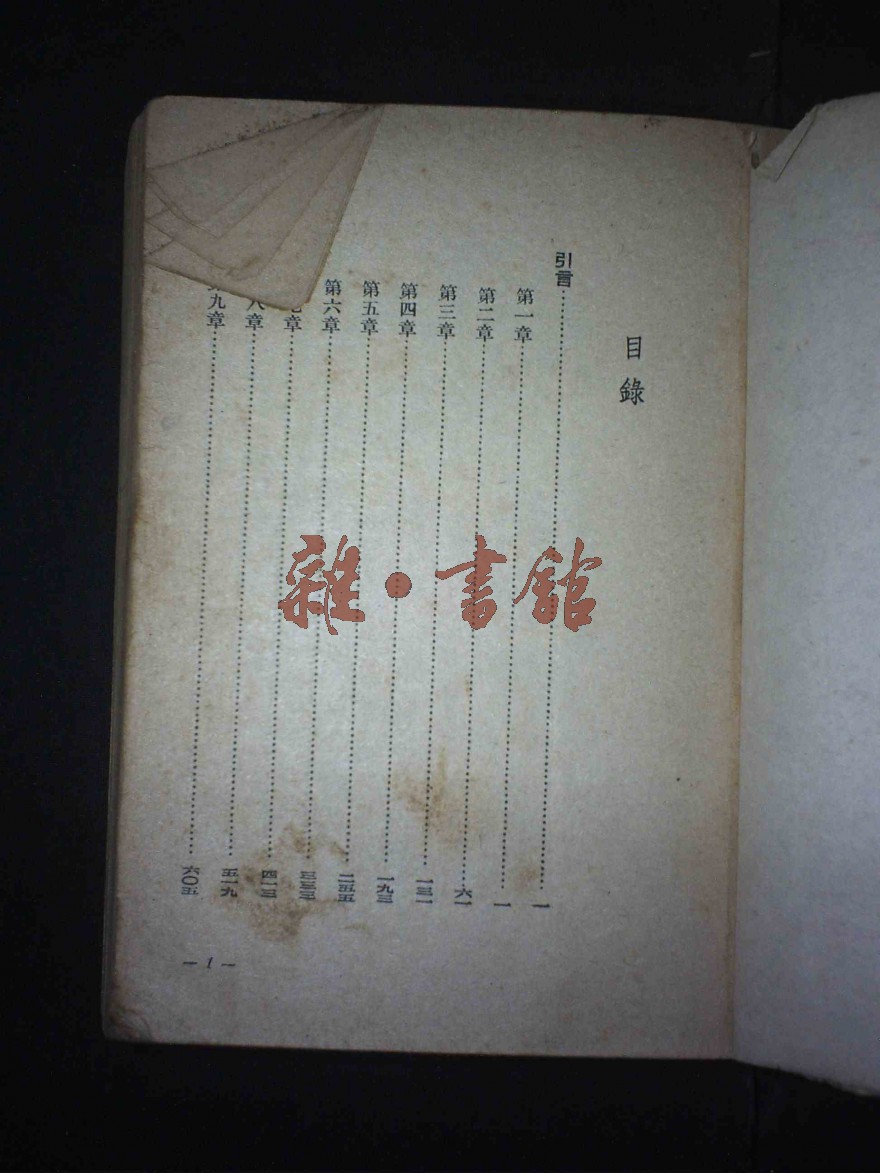 目錄
引言……一
第一章……一
第二章……六一
第三章……一三一
第四章……一九三
第五章……二五五
第六章……三三三
章……四一三
八章……五一九
九章……六〇五
— 1 —
雜·書館